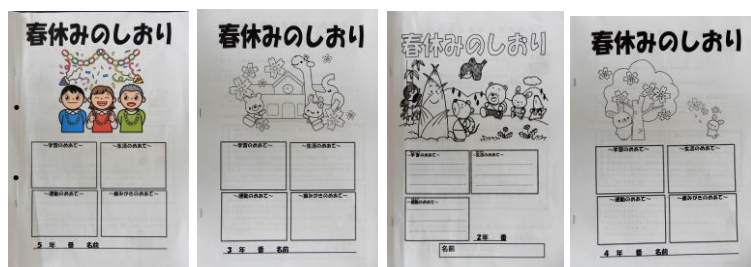 春休みのしおり
～学習のめあて～
～生活のめあて～
～運動のめあて～
～歯みがきのめあて～
5 年 番 名前
春休みのしおり
～学習のめあて～
～生活のめあて～
～運動のめあて～
～歯みがきのめあて～
3 年 番 名前
春休みのしおり
～学習のめあて～
～生活のめあて～
～運動のめあて～
2年 番
名前
春休みのしおり
～学習のめあて～
～生活のめあて～
～運動のめあて～
～歯みがきのめあて～
4 年 番 名前